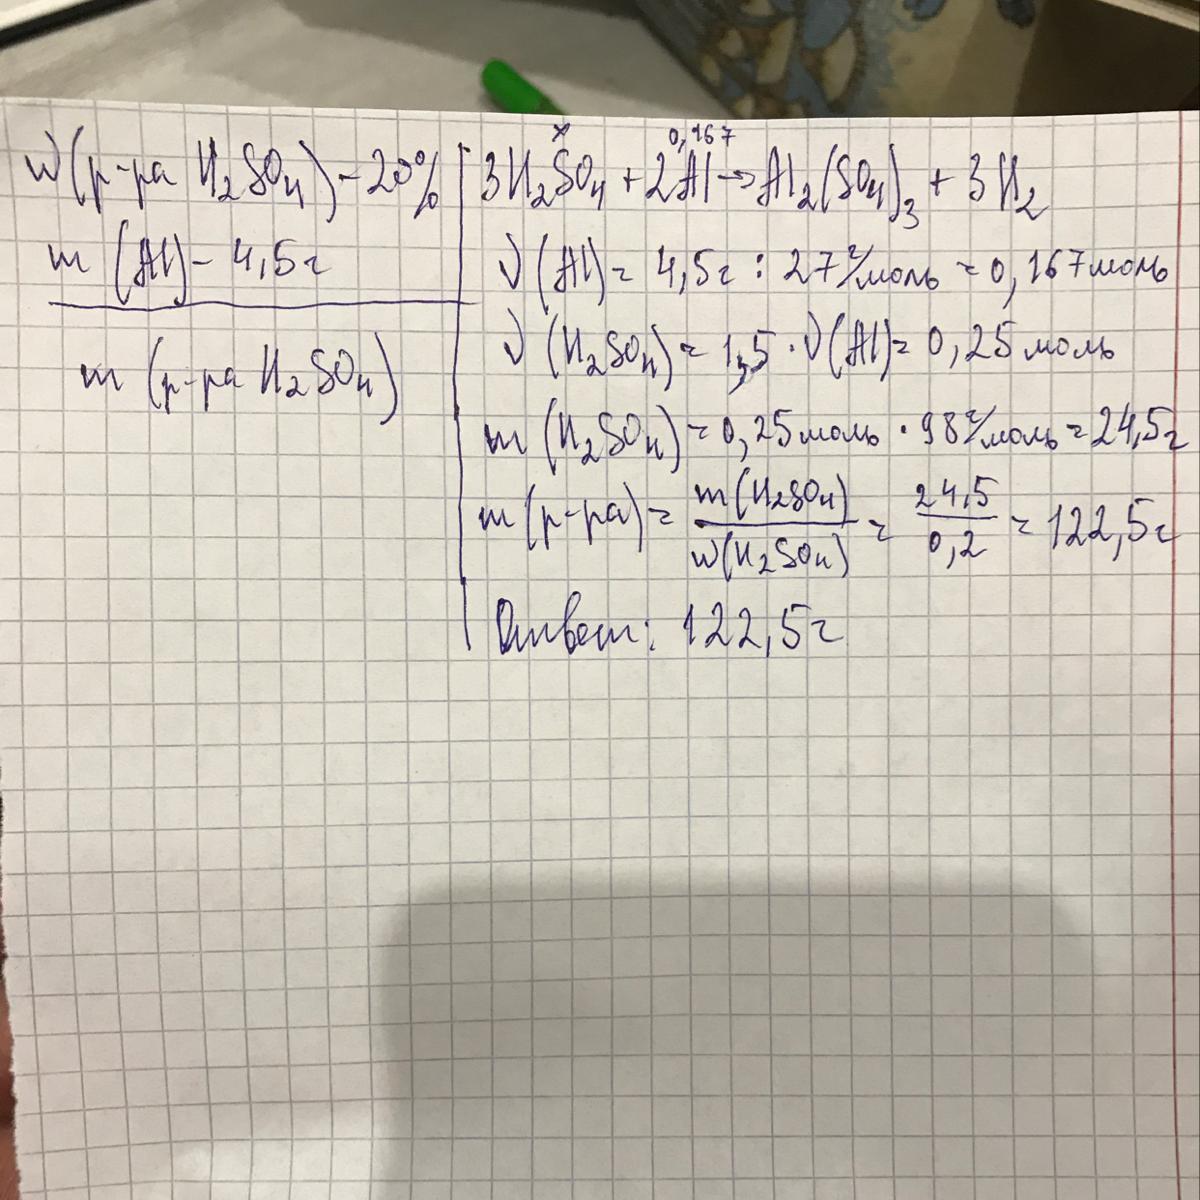 w(р-ра H₂SO₄) - 20%
m (Al) - 4,5г
m (р-ра H₂SO₄)
x 0,167
3H₂SO₄ + 2Al → Al₂(SO₄)₃ + 3H₂
ν(Al) = 4,5г : 27 г/моль = 0,167моль
ν (H₂SO₄) = 1,5 · ν(Al) = 0,25 моль
m (H₂SO₄) = 0,25моль · 98 г/моль = 24,5г
m (р-ра) = m(H₂SO₄)/w(H₂SO₄) = 24,5/0,2 = 122,5г
Ответ: 122,5г